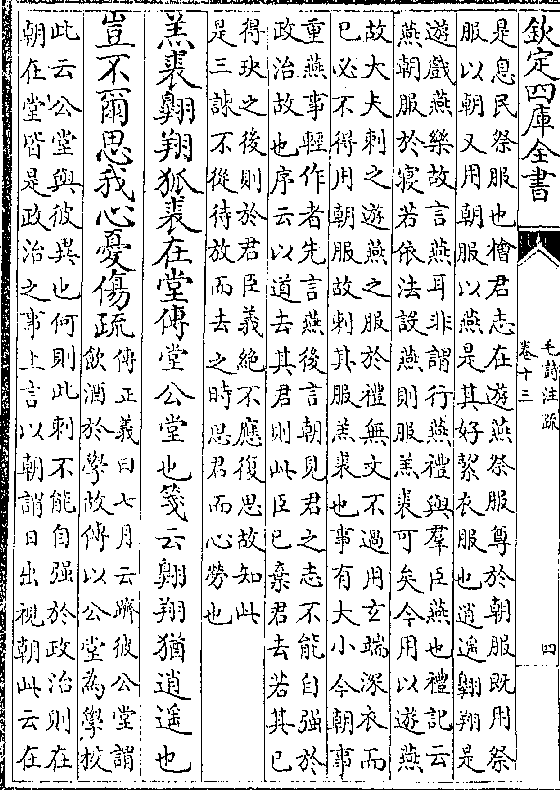 欽定四庫全書
毛詩注疏
卷十三
四
是息民祭服也檜君志在遊燕祭服尊於朝服既用祭
服以朝又用朝服以燕是其好絜衣服也逍遙翺翔是
遊戲燕樂故言燕耳非謂行燕禮與羣臣燕也禮記云
燕朝服於寢若依法設燕則服羔裘可矣今用以遊燕
故大夫刺之遊燕之服於禮無文不過用玄端深衣而
已必不得用朝服故刺其服羔裘也事有大小今朝事
重燕事輕作者先言燕後言朝見君之志不能自强於
政治故也序云以道去其君則此臣已棄君去若其已
得玦之後則於君臣義絶不應復思故知此
是三諫不從待放而去之時思君而心勞也
羔裘翺翔狐裘在堂傳堂公堂也箋云翺翔猶逍遥也
豈不爾思我心憂傷疏傳正義曰七月云躋彼公堂謂
飲酒於學故傳以公堂為學校
此云公堂與彼異也何則此刺不能自强於政治則在
朝在堂皆是政治之事上言以朝謂日出視朝此云在